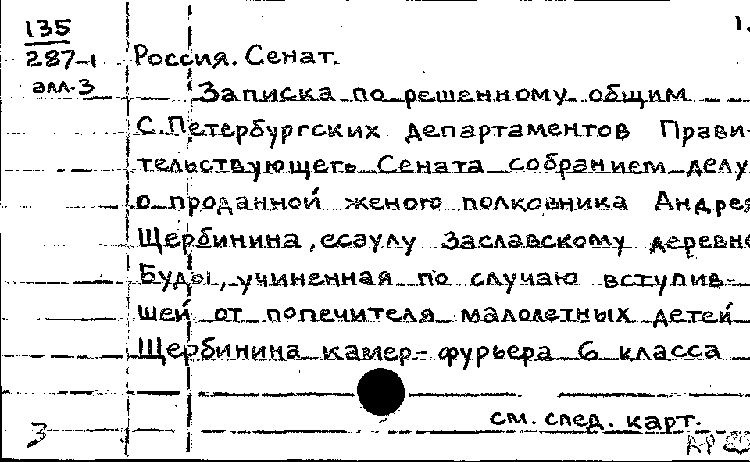 135
287-1
алл-3
1.
Россия. Сенат.
Записка по решенному общим
С.Петербургских департаментов Прави-
тельствующего Сената собранием делу
о проданной женою полковника Андрея
Щербинина, есаулу Заславскому деревне
Буды, учиненная по случаю вступив-
шей от попечителя малолетных детей
Щербинина камер-фурьера 6 класса
см. след. карт.
3